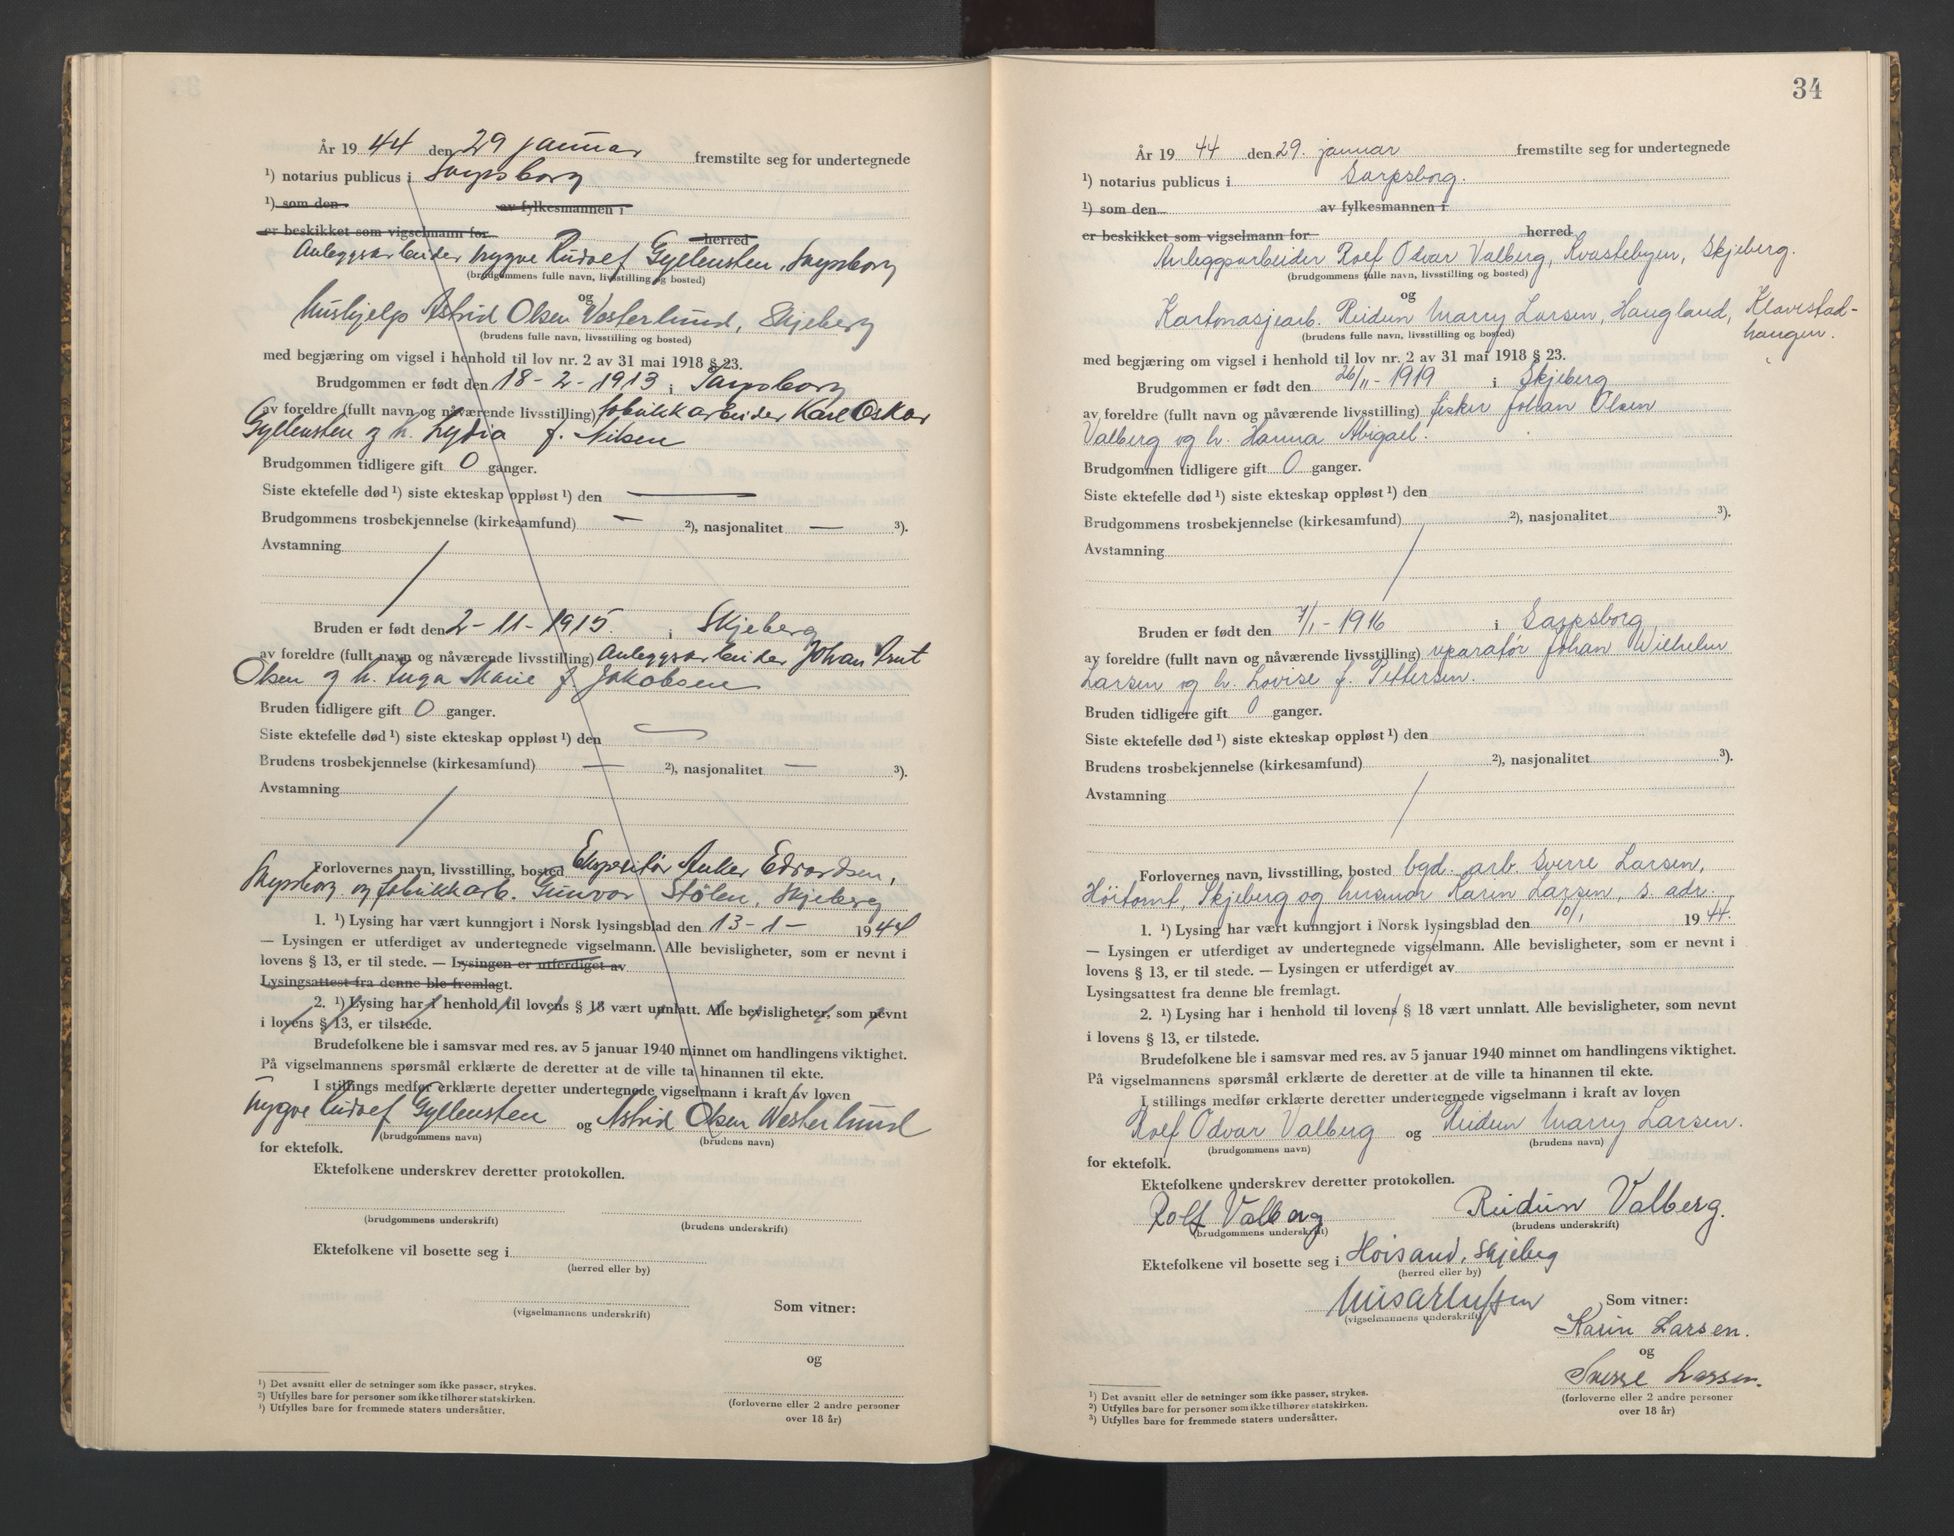 År 1944 den 29 januar fremstilte seg for undertegnede
¹) notarius publicus i Sarpsborg
¹) som den av fylkesmannen i
er beskikket som vigselmann for herred
Anleggsarbeider Trygve Rudolf Gyllensten, Sarpsborg
(brudgommens fulle navn, livsstilling og bosted)
og
Hushjelp Astrid Olsen Westerlund, Skjeberg
(brudens fulle navn, livsstilling og bosted)
med begjæring om vigsel i henhold til lov nr. 2 av 31 mai 1918 § 23.
Brudgommen er født den 18-2-1913 i Sarpsborg
av foreldre (fullt navn og nåværende livsstilling) fabrikkarbeider Karl Oskar
Gyllensten og h. Lydia f. Nilsen
Brudgommen tidligere gift 0 ganger.
Siste ektefelle død ¹) siste ekteskap oppløst ¹) den —
Brudgommens trosbekjennelse (kirkesamfund) — ²), nasjonalitet — ³).
Avstamning
Bruden er født den 2-11-1915. i Skjeberg
av foreldre (fullt navn og nåværende livsstilling) Anleggsarbeider Johan
Olsen og h. Inga Marie f. Jakobsen
Bruden tidligere gift 0 ganger.
Siste ektefelle død ¹) siste ekteskap oppløst ¹) den
Brudens trosbekjennelse (kirkesamfund) — ²), nasjonalitet — ³).
Avstamning
Forlovernes navn, livsstilling, bosted Ekspeditør Anker Edvardsen,
Sarpsborg og fabrikkarb. Gunvor Stølen, Skjeberg
1. ¹) Lysing har vært kunngjort i Norsk lysingsblad den 13-1- 1944
— Lysingen er utferdiget av undertegnede vigselmann. Alle bevisligheter, som er nevnt i
lovens § 13, er til stede. — Lysingen er utferdiget av
Lysingsattest fra denne ble fremlagt.
2. ¹) Lysing har i henhold til lovens § 18 vært unnlatt. Alle bevisligheter, som nevnt
i lovens § 13, er tilstede.
Brudefolkene ble i samsvar med res. av 5 januar 1940 minnet om handlingens viktighet.
På vigselmannens spørsmål erklærte de deretter at de ville ta hinannen til ekte.
I stillings medfør erklærte deretter undertegnede vigselmann i kraft av loven
Trygve Rudolf Gyllensten og Astrid Olsen Westerlund
(brudgommens navn) (brudens navn)
for ektefolk.
Ektefolkene underskrev deretter protokollen.
(brudgommens underskrift) (brudens underskrift)
Ektefolkene vil bosette seg i
(herred eller by)
(vigselmannens underskrift) Som vitner:
og
¹) Det avsnitt eller de setninger som ikke passer, strykes.
²) Utfylles bare for personer som ikke tilhører statskirken.
³) Utfylles bare for fremmede staters undersåtter.
(forloverne eller 2 andre personer
over 18 år)
34
År 1944 den 29. januar fremstilte seg for undertegnede
¹) notarius publicus i Sarpsborg.
¹) som den av fylkesmannen i
er beskikket som vigselmann for herred
Anleggsarbeider Rolf Odvar Valberg, Kvastebyen, Skjeberg.
(brudgommens fulle navn, livsstilling og bosted)
og
Kartonasjearb. Reidun Marry Larsen, Haugland, Klavestad-
haugen.
(brudens fulle navn, livsstilling og bosted)
med begjæring om vigsel i henhold til lov nr. 2 av 31 mai 1918 § 23.
Brudgommen er født den 26/11-1919 i Skjeberg
av foreldre (fullt navn og nåværende livsstilling) fisker Johan Olsen
Valberg og h. Hanna Abigael.
Brudgommen tidligere gift 0 ganger.
Siste ektefelle død ¹) siste ekteskap oppløst ¹) den
Brudgommens trosbekjennelse (kirkesamfund) ²), nasjonalitet ³).
Avstamning
Bruden er født den 7/1-1916 i Sarpsborg
av foreldre (fullt navn og nåværende livsstilling) reparatør Johan Wilhelm
Larsen og h. Lovise f. Pettersen.
Bruden tidligere gift 0 ganger.
Siste ektefelle død ¹) siste ekteskap oppløst ¹) den
Brudens trosbekjennelse (kirkesamfund) ²), nasjonalitet ³).
Avstamning
Forlovernes navn, livsstilling, bosted bgd. arb. Sverre Larsen,
Höitomt, Skjeberg og husmor Karin Larsen, s. adr.
1. ¹) Lysing har vært kunngjort i Norsk lysingsblad den 10/1 1944.
— Lysingen er utferdiget av undertegnede vigselmann. Alle bevisligheter, som er nevnt i
lovens § 13, er til stede. — Lysingen er utferdiget av
Lysingsattest fra denne ble fremlagt.
2. ¹) Lysing har i henhold til lovens § 18 vært unnlatt. Alle bevisligheter, som nevnt
i lovens § 13, er tilstede.
Brudefolkene ble i samsvar med res. av 5 januar 1940 minnet om handlingens viktighet.
På vigselmannens spørsmål erklærte de deretter at de ville ta hinannen til ekte.
I stillings medfør erklærte deretter undertegnede vigselmann i kraft av loven
Rolf Odvar Valberg og Reidun Marry Larsen.
(brudgommens navn) (brudens navn)
for ektefolk.
Ektefolkene underskrev deretter protokollen.
Rolf Valberg Reidun Valberg.
(brudgommens underskrift) (brudens underskrift)
Ektefolkene vil bosette seg i Höisand, Skjeberg
(herred eller by)
(vigselmannens underskrift) Som vitner:
Karin Larsen.
og
Sverre Larsen.
¹) Det avsnitt eller de setninger som ikke passer, strykes.
²) Utfylles bare for personer som ikke tilhører statskirken.
³) Utfylles bare for fremmede staters undersåtter.
(forloverne eller 2 andre personer
over 18 år)